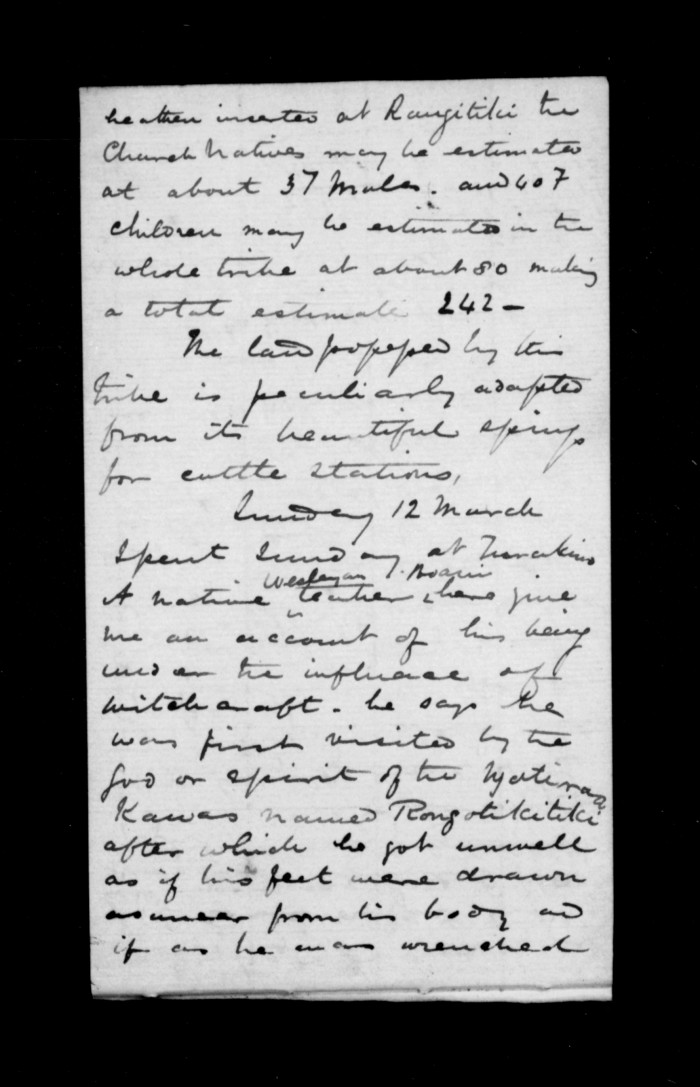 heathen inserted at Rangitiki the
Church Natives may be estimated
at about 37 Males. and 40 F
children may be estimated in the
whole tribe at about 80 making
a total estimate 242 —
The land possessed by this
tribe is peculiarly adapted
from its beautiful springs
for cattle stations,
Sunday 12 March
Spent Sunday at Turakina
Wesleyan
A native teacher here give
me an account of his being
under the influence of
witchcraft. he says he
was first visited by the
god or spirit of the Ngatiraa
Kawas named Rongotikitiki
after which he got unwell
as if his feet were drawn
from his body and
if as he was wrenched